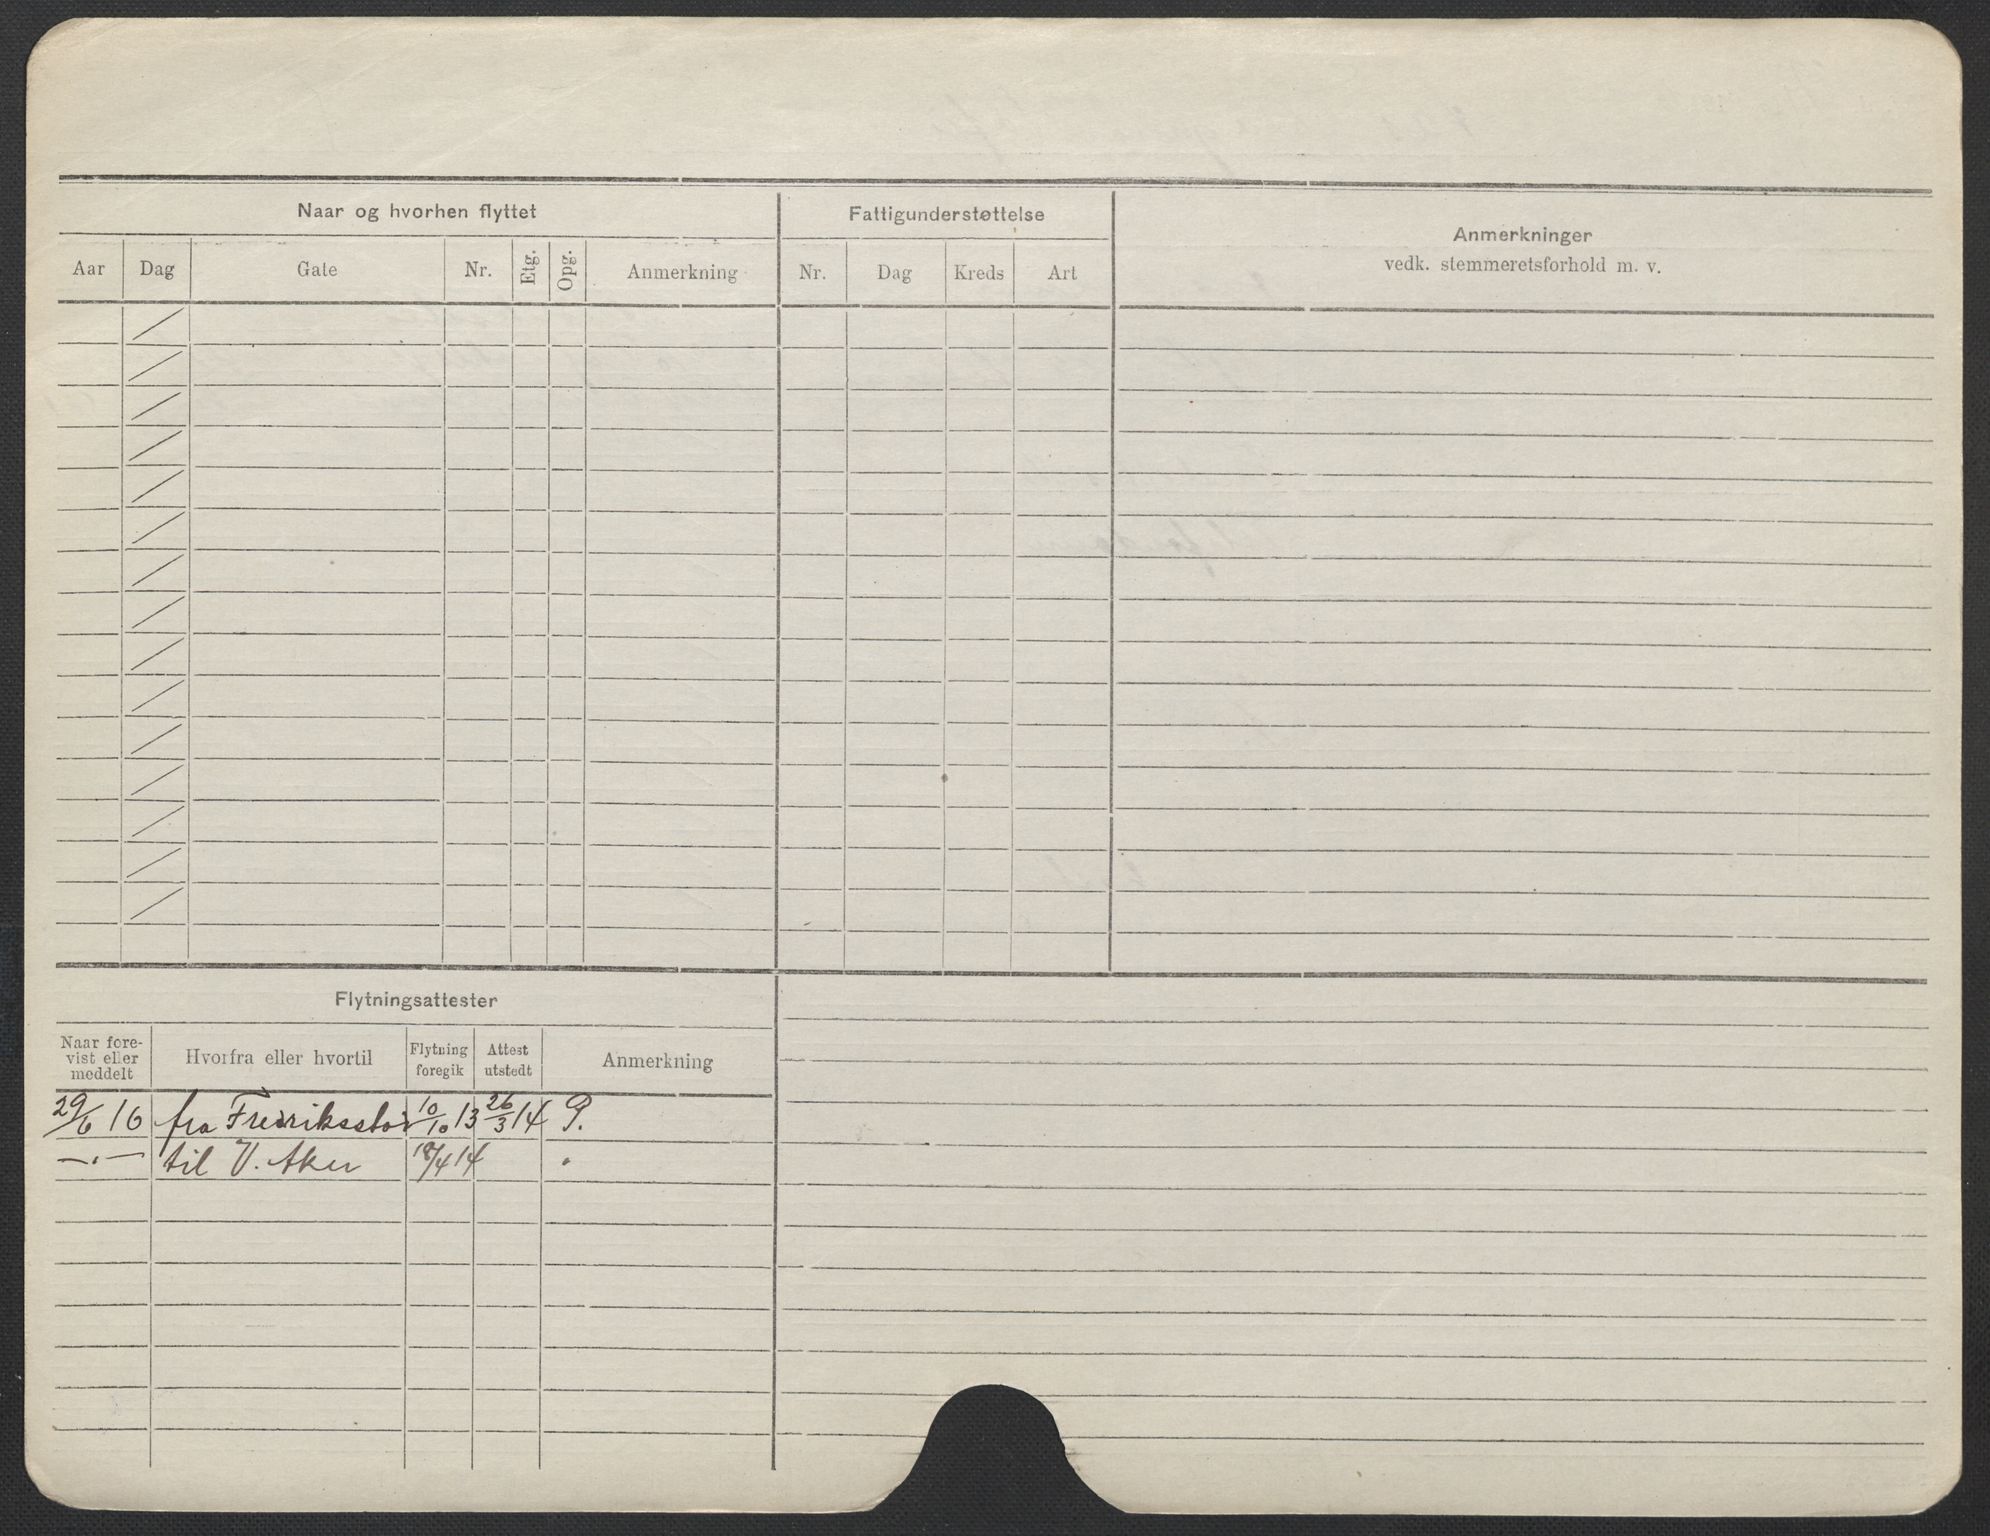 Naar og hvorhen flyttet
Fattigunderstøttelse
Anmerkninger
vedk. stemmeretsforhold m. v.
Aar Dag Gate Nr. Etg. Opg. Anmerkning Nr. Dag Kreds Art
Flytningsattester
Naar fore-
vist eller
meddelt
Hvorfra eller hvortil
Flytning
foregik
Attest
utstedt
Anmerkning
29/6 16 fra Fredriksstad 10/10 13 26/3 14 P.
—"— til V. Aker 18/4 14 "